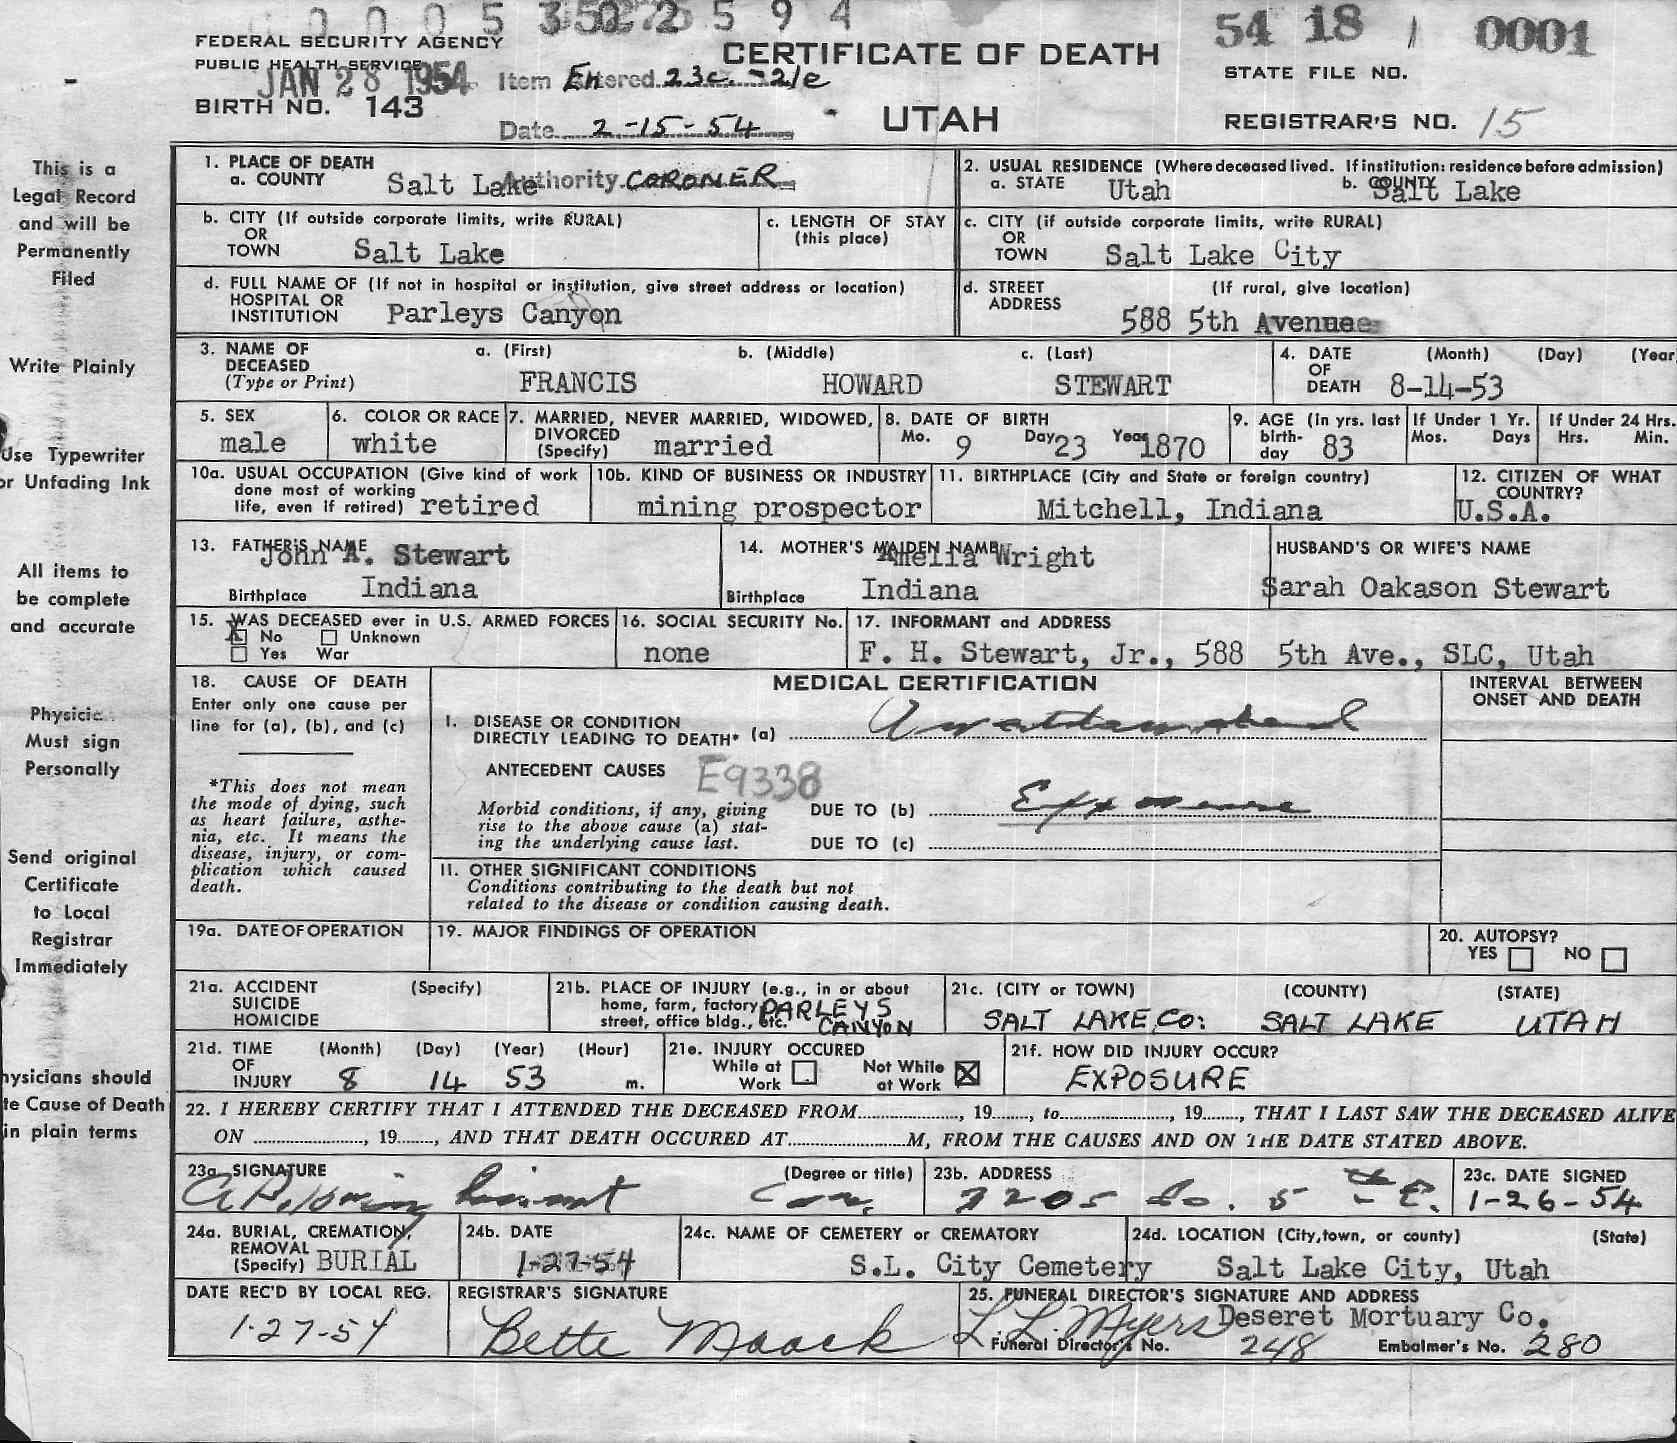 0 0 0 5 3 5 2 2 5 9 4
54 18 1 0001
FEDERAL SECURITY AGENCY
PUBLIC HEALTH SERVICE
JAN 28 1954
BIRTH NO. 143
Item Entered 23c - 21e
Date 2-15-54
Authority CORONER
CERTIFICATE OF DEATH
UTAH
STATE FILE NO.
REGISTRAR'S NO. 15
This is a
Legal Record
and will be
Permanently
Filed
Write Plainly
Use Typewriter
or Unfading Ink
All items to
be complete
and accurate
Must sign
Personally
Send original
Certificate
to Local
Registrar
Immediately
hysicians should
te Cause of Death
in plain terms
1. PLACE OF DEATH
a. COUNTY Salt Lake
2. USUAL RESIDENCE (Where deceased lived. If institution: residence before admission)
a. STATE Utah b. COUNTY Salt Lake
b. CITY (If outside corporate limits, write RURAL)
OR
TOWN Salt Lake
c. LENGTH OF STAY
(this place)
c. CITY (if outside corporate limits, write RURAL)
OR
TOWN Salt Lake City
d. FULL NAME OF (If not in hospital or institution, give street address or location)
HOSPITAL OR
INSTITUTION Parleys Canyon
d. STREET (If rural, give location)
ADDRESS
588 5th Avenue
3. NAME OF a. (First) b. (Middle) c. (Last)
DECEASED
(Type or Print) FRANCIS HOWARD STEWART
4. DATE (Month) (Day) (Year
OF
DEATH 8-14-53
5. SEX
male
6. COLOR OR RACE
white
7. MARRIED, NEVER MARRIED, WIDOWED,
DIVORCED
(Specify) married
8. DATE OF BIRTH
Mo. 9 Day 23 Year 1870
9. AGE (In yrs. last
birth-
day 83
If Under 1 Yr.
Mos. Days
If Under 24 Hrs.
Hrs. Min.
10a. USUAL OCCUPATION (Give kind of work
done most of working
life, even if retired) retired
10b. KIND OF BUSINESS OR INDUSTRY
mining prospector
11. BIRTHPLACE (City and State or foreign country)
Mitchell, Indiana
12. CITIZEN OF WHAT
COUNTRY?
U.S.A.
13. FATHER'S NAME
John A. Stewart
Birthplace Indiana
14. MOTHER'S MAIDEN NAME
Amelia Wright
Birthplace Indiana
HUSBAND'S OR WIFE'S NAME
Sarah Oakason Stewart
15. WAS DECEASED ever in U.S. ARMED FORCES
X No Unknown
Yes War
16. SOCIAL SECURITY No.
none
17. INFORMANT and ADDRESS
F. H. Stewart, Jr., 588 5th Ave., SLC, Utah
18. CAUSE OF DEATH
Enter only one cause per
line for (a), (b), and (c)
*This does not mean
the mode of dying, such
as heart failure, asthe-
nia, etc. It means the
disease, injury, or com-
plication which caused
death.
MEDICAL CERTIFICATION
INTERVAL BETWEEN
ONSET AND DEATH
I. DISEASE OR CONDITION
DIRECTLY LEADING TO DEATH* (a)
ANTECEDENT CAUSES E9338
Morbid conditions, if any, giving
rise to the above cause (a) stat-
ing the underlying cause last.
DUE TO (b) Exposure
DUE TO (c)
II. OTHER SIGNIFICANT CONDITIONS
Conditions contributing to the death but not
related to the disease or condition causing death.
19a. DATE OF OPERATION
19. MAJOR FINDINGS OF OPERATION
20. AUTOPSY?
YES NO
21a. ACCIDENT (Specify)
SUICIDE
HOMICIDE
21b. PLACE OF INJURY (e.g., in or about
home, farm, factory,
street, office bldg., etc.
PARLEYS
CANYON
21c. (CITY or TOWN) (COUNTY) (STATE)
SALT LAKE CO: SALT LAKE UTAH
21d. TIME (Month) (Day) (Year) (Hour)
OF
INJURY 8 14 53 m.
21e. INJURY OCCURED
While at Work
Not While at Work X
21f. HOW DID INJURY OCCUR?
EXPOSURE
22. I HEREBY CERTIFY THAT I ATTENDED THE DECEASED FROM , 19 , to , 19 , THAT I LAST SAW THE DECEASED ALIVE
ON , 19 , AND THAT DEATH OCCURED AT M, FROM THE CAUSES AND ON THE DATE STATED ABOVE.
23a. SIGNATURE (Degree or title)
23b. ADDRESS
2205 So. 5 th E.
23c. DATE SIGNED
1-26-54
24a. BURIAL, CREMATION,
REMOVAL
(Specify) BURIAL
24b. DATE
1-27-54
24c. NAME OF CEMETERY or CREMATORY
S.L. City Cemetery
24d. LOCATION (City, town, or county) (State)
Salt Lake City, Utah
DATE REC'D BY LOCAL REG.
1-27-54
REGISTRAR'S SIGNATURE
Bette Maack
25. FUNERAL DIRECTOR'S SIGNATURE AND ADDRESS
L. L. Myers Deseret Mortuary Co.
Funeral Director's No. 248 Embalmer's No. 280